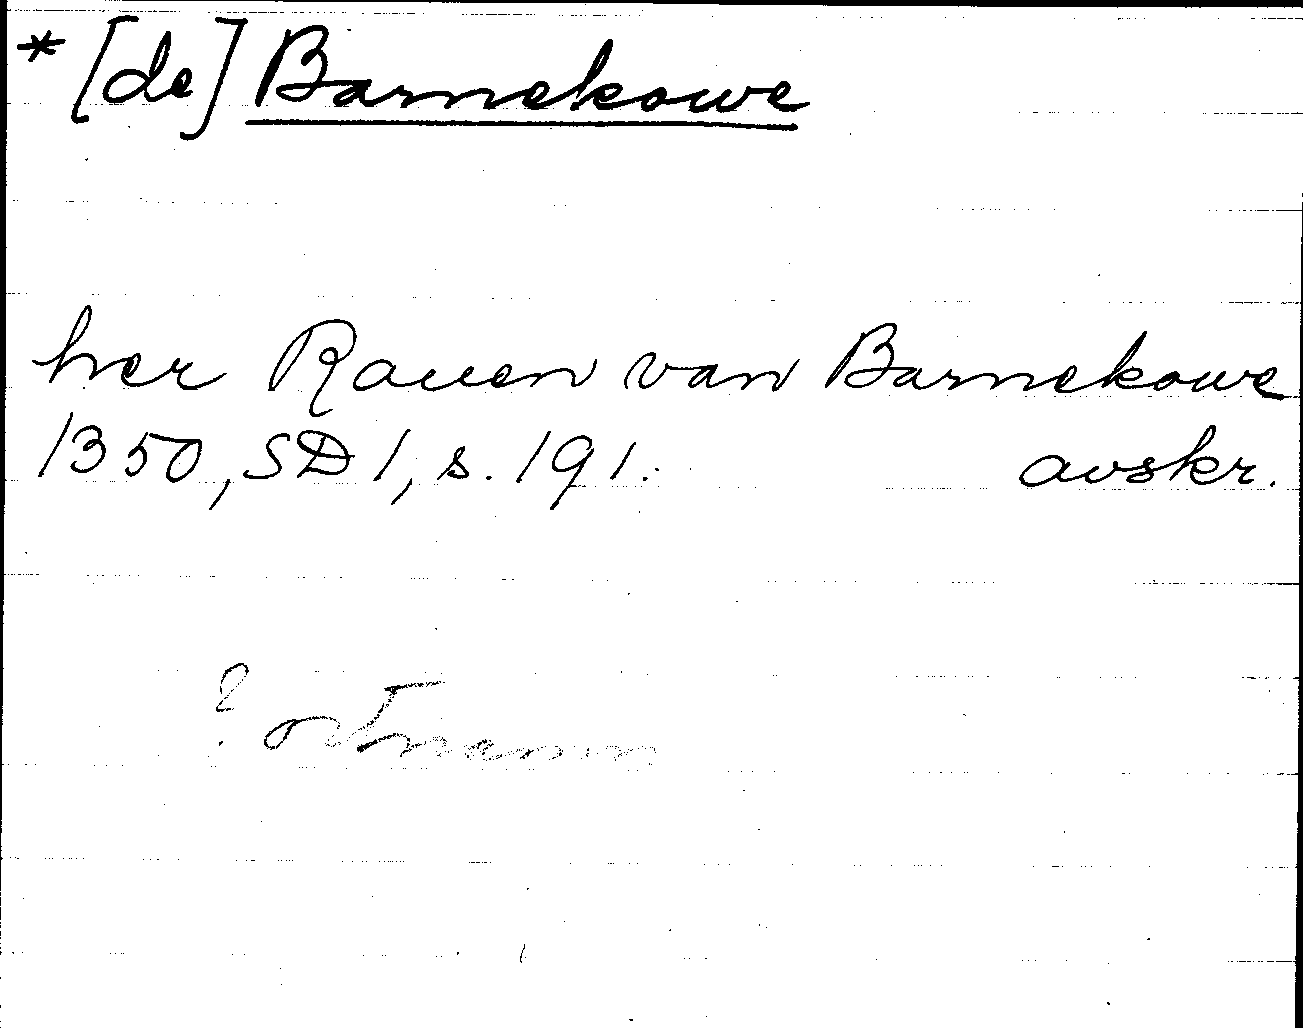 * [de] Barnekowe
her Rauen van Barnekowe
1350, SD 1, s. 191. avskr.
? ortnamn